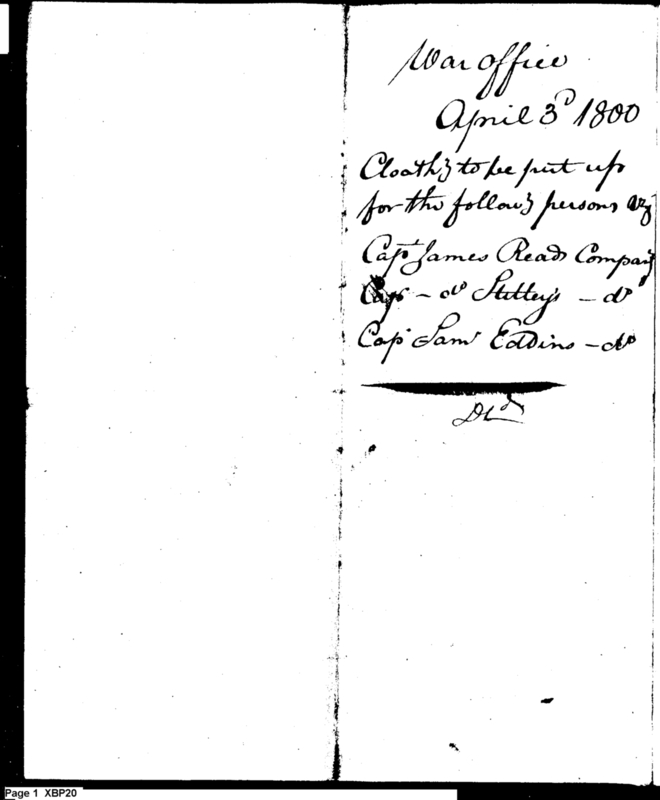 War office
April 3d 1800
Cloathg to be put up
for the followg persons Vz
Capt James Reads Company
Capt – do Stilleys – do
Capt Saml Eddins – do
Dld
Page 1 XBP20